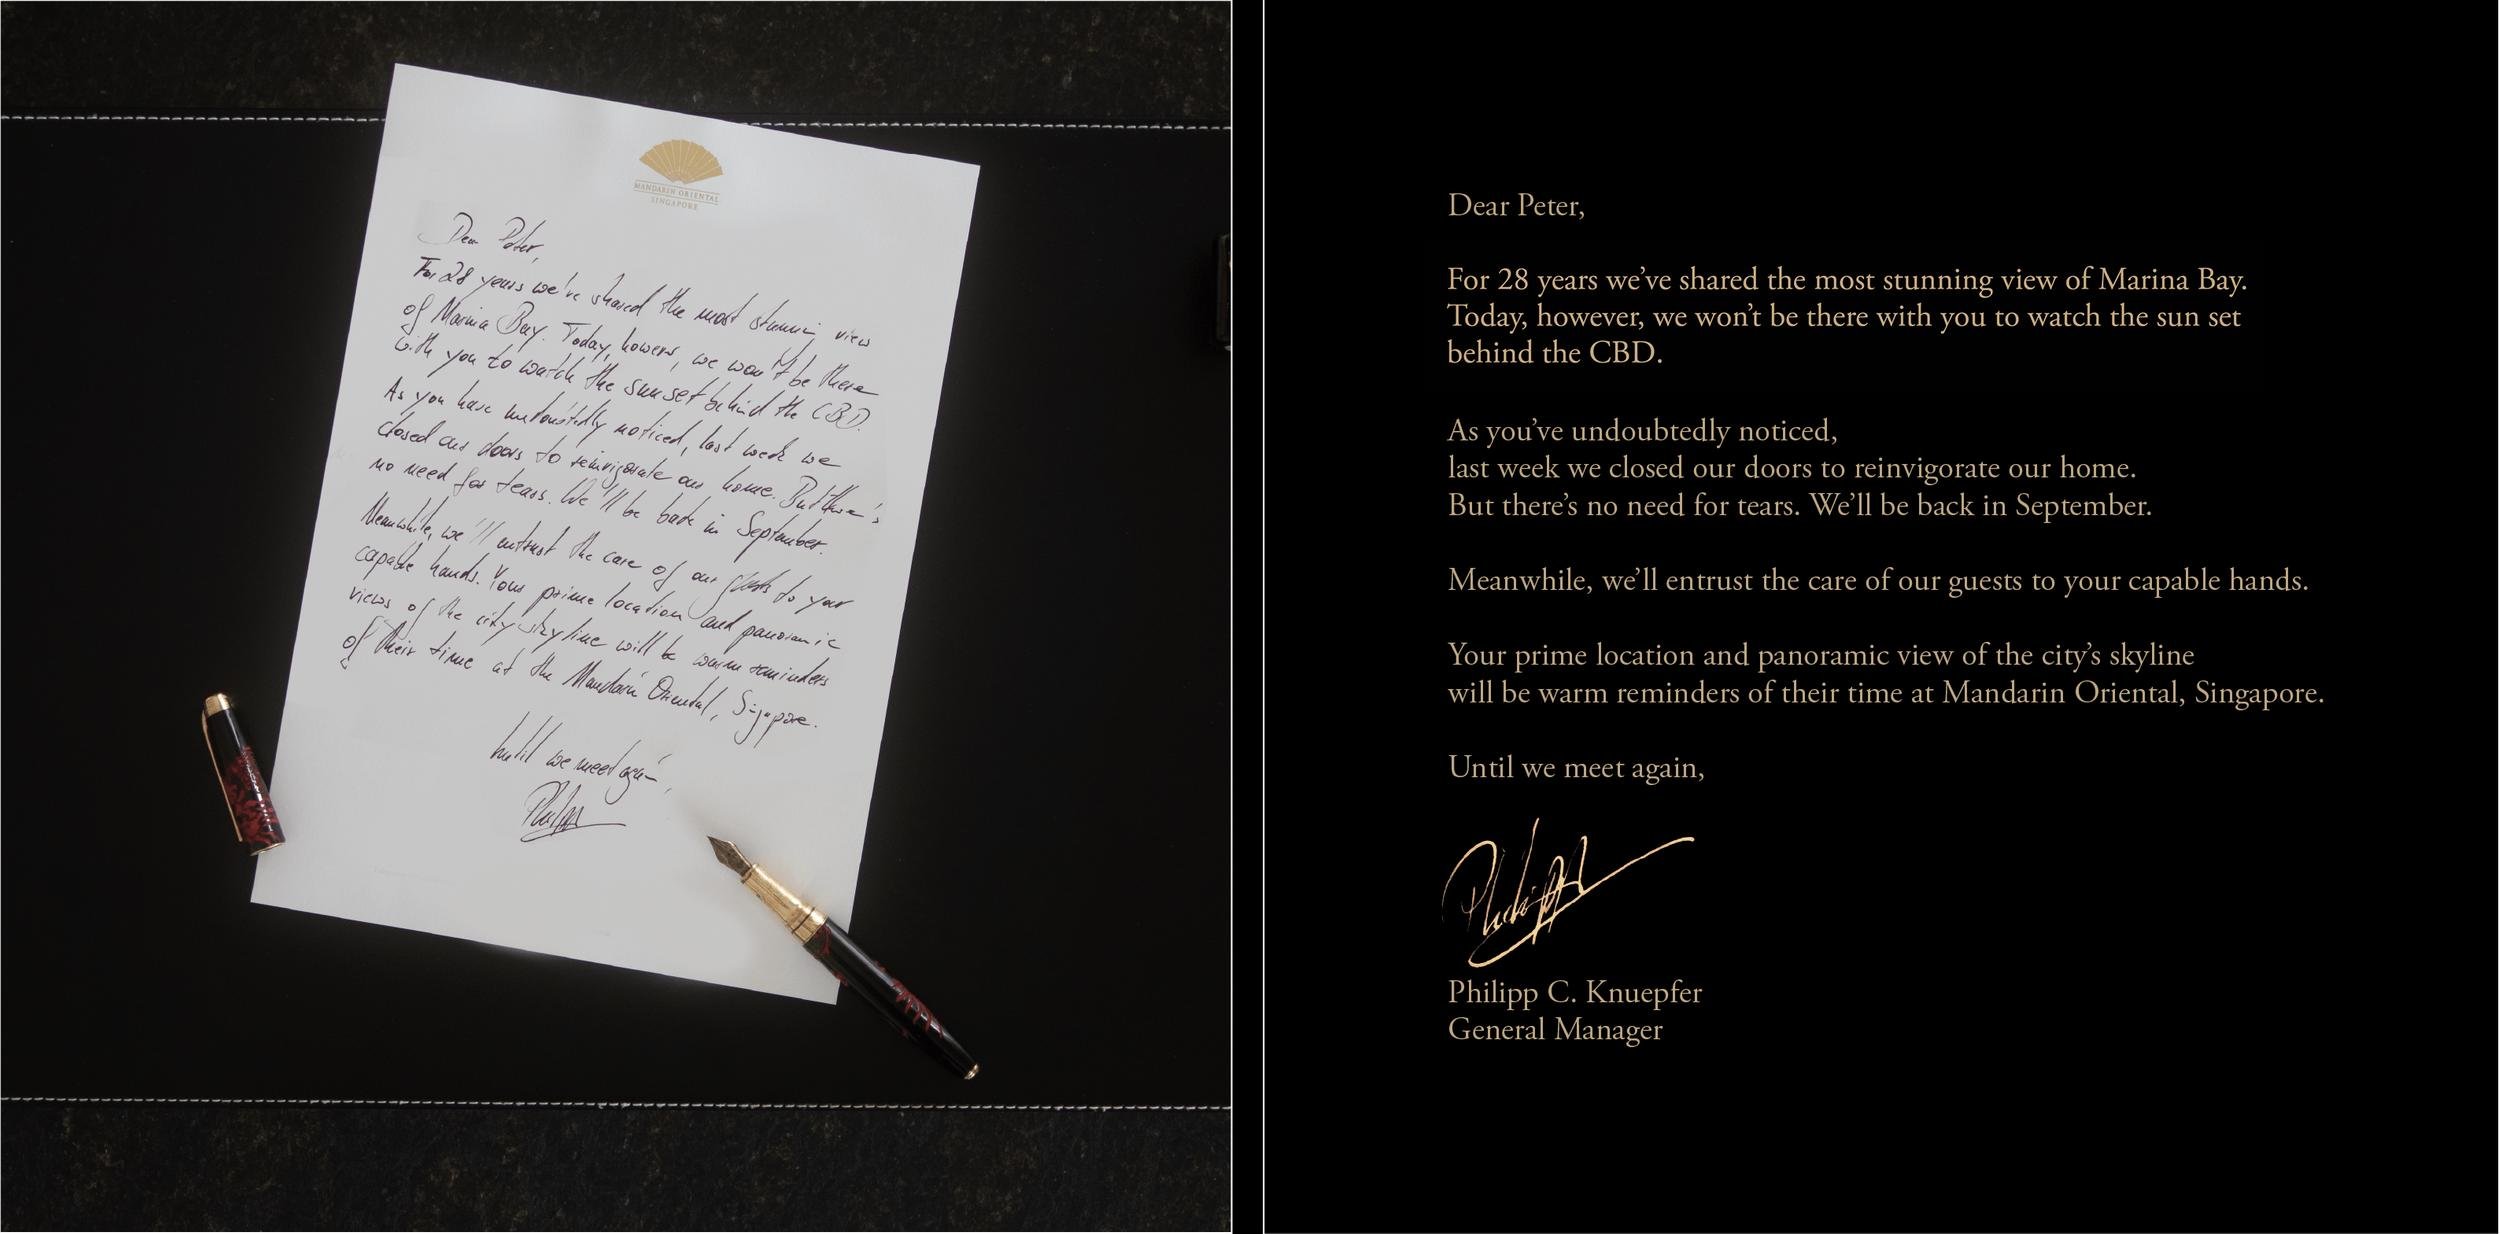 MANDARIN ORIENTAL
SINGAPORE
Dear Peter,
For 28 years we've shared the most stunning view
of Marina Bay. Today, however, we won't be there
with you to watch the sunset behind the CBD.
As you have undoubtedly noticed, last week we
closed our doors to reinvigorate our home. But there's
no need for tears. We'll be back in September.
Meanwhile, we'll entrust the care of our guests to your
capable hands. Your prime location and panoramic
views of the city skyline will be warm reminders
of their time at the Mandarin Oriental, Singapore.
Until we meet again,
Philipp
Dear Peter,
For 28 years we've shared the most stunning view of Marina Bay.
Today, however, we won't be there with you to watch the sun set
behind the CBD.
As you've undoubtedly noticed,
last week we closed our doors to reinvigorate our home.
But there's no need for tears. We'll be back in September.
Meanwhile, we'll entrust the care of our guests to your capable hands.
Your prime location and panoramic view of the city's skyline
will be warm reminders of their time at Mandarin Oriental, Singapore.
Until we meet again,
Philipp
Philipp C. Knuepfer
General Manager